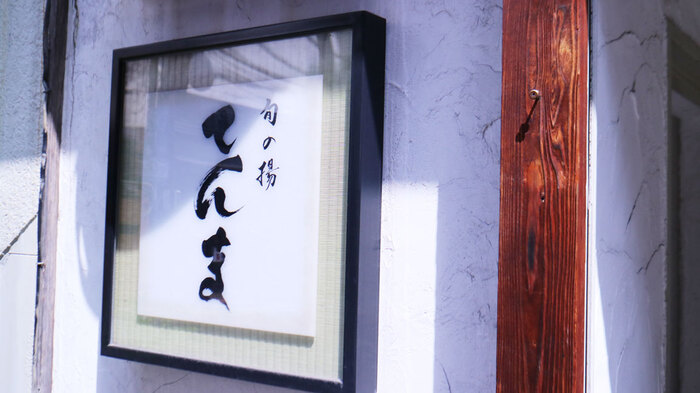 旬の揚
てんま